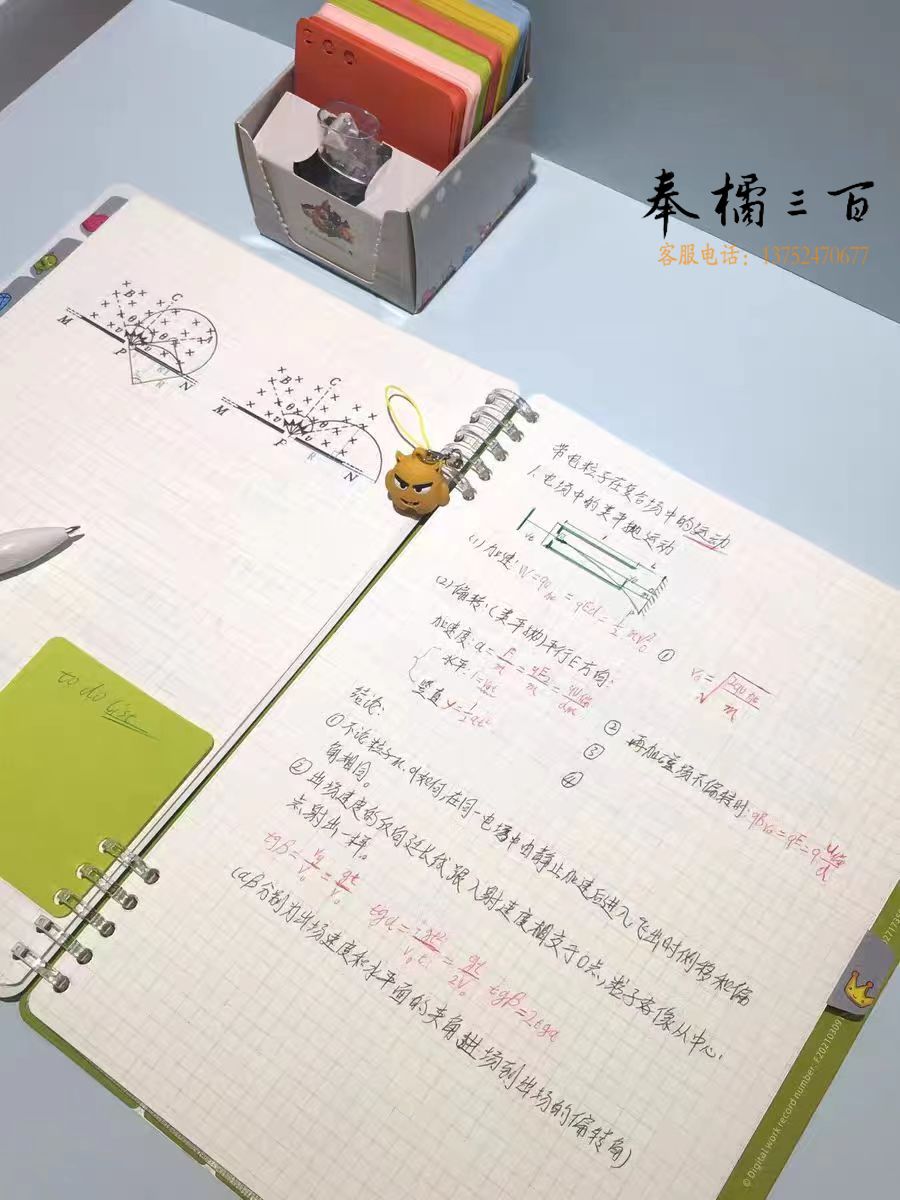 奉橘三百
客服电话：13752470677
B C
M θ
P R N
B C
M θ
P R N
to do list
带电粒子在复合场中的运动
1、电场中的类平抛运动
(1)加速：W=qU加=qEd=½mv₀² ①
v₀=√(2qU加/m)
(2)偏转：(类平抛)平行E方向：
加速度：a=F/m=qE₂/m=qU偏/dm ②
再加磁场不偏转时：qBv₀=qE=qU偏/d
水平：l=v₀t ③
竖直 y=½at² ④
结论：
①不论粒子m、q如何，在同一电场中由静止加速后进入飞出时侧移和偏
角相同。
②出场速度的反向延长线跟入射速度相交于O点，粒子好像从中心
点射出一样。
tgβ=vy/v₀=gt/v₀ tgα=½gt²/v₀t=gt/2v₀ tgβ=2tgα
(αβ分别为出场速度和水平面的夹角进场到出场的偏转角)
© Digital work record number: F20210309